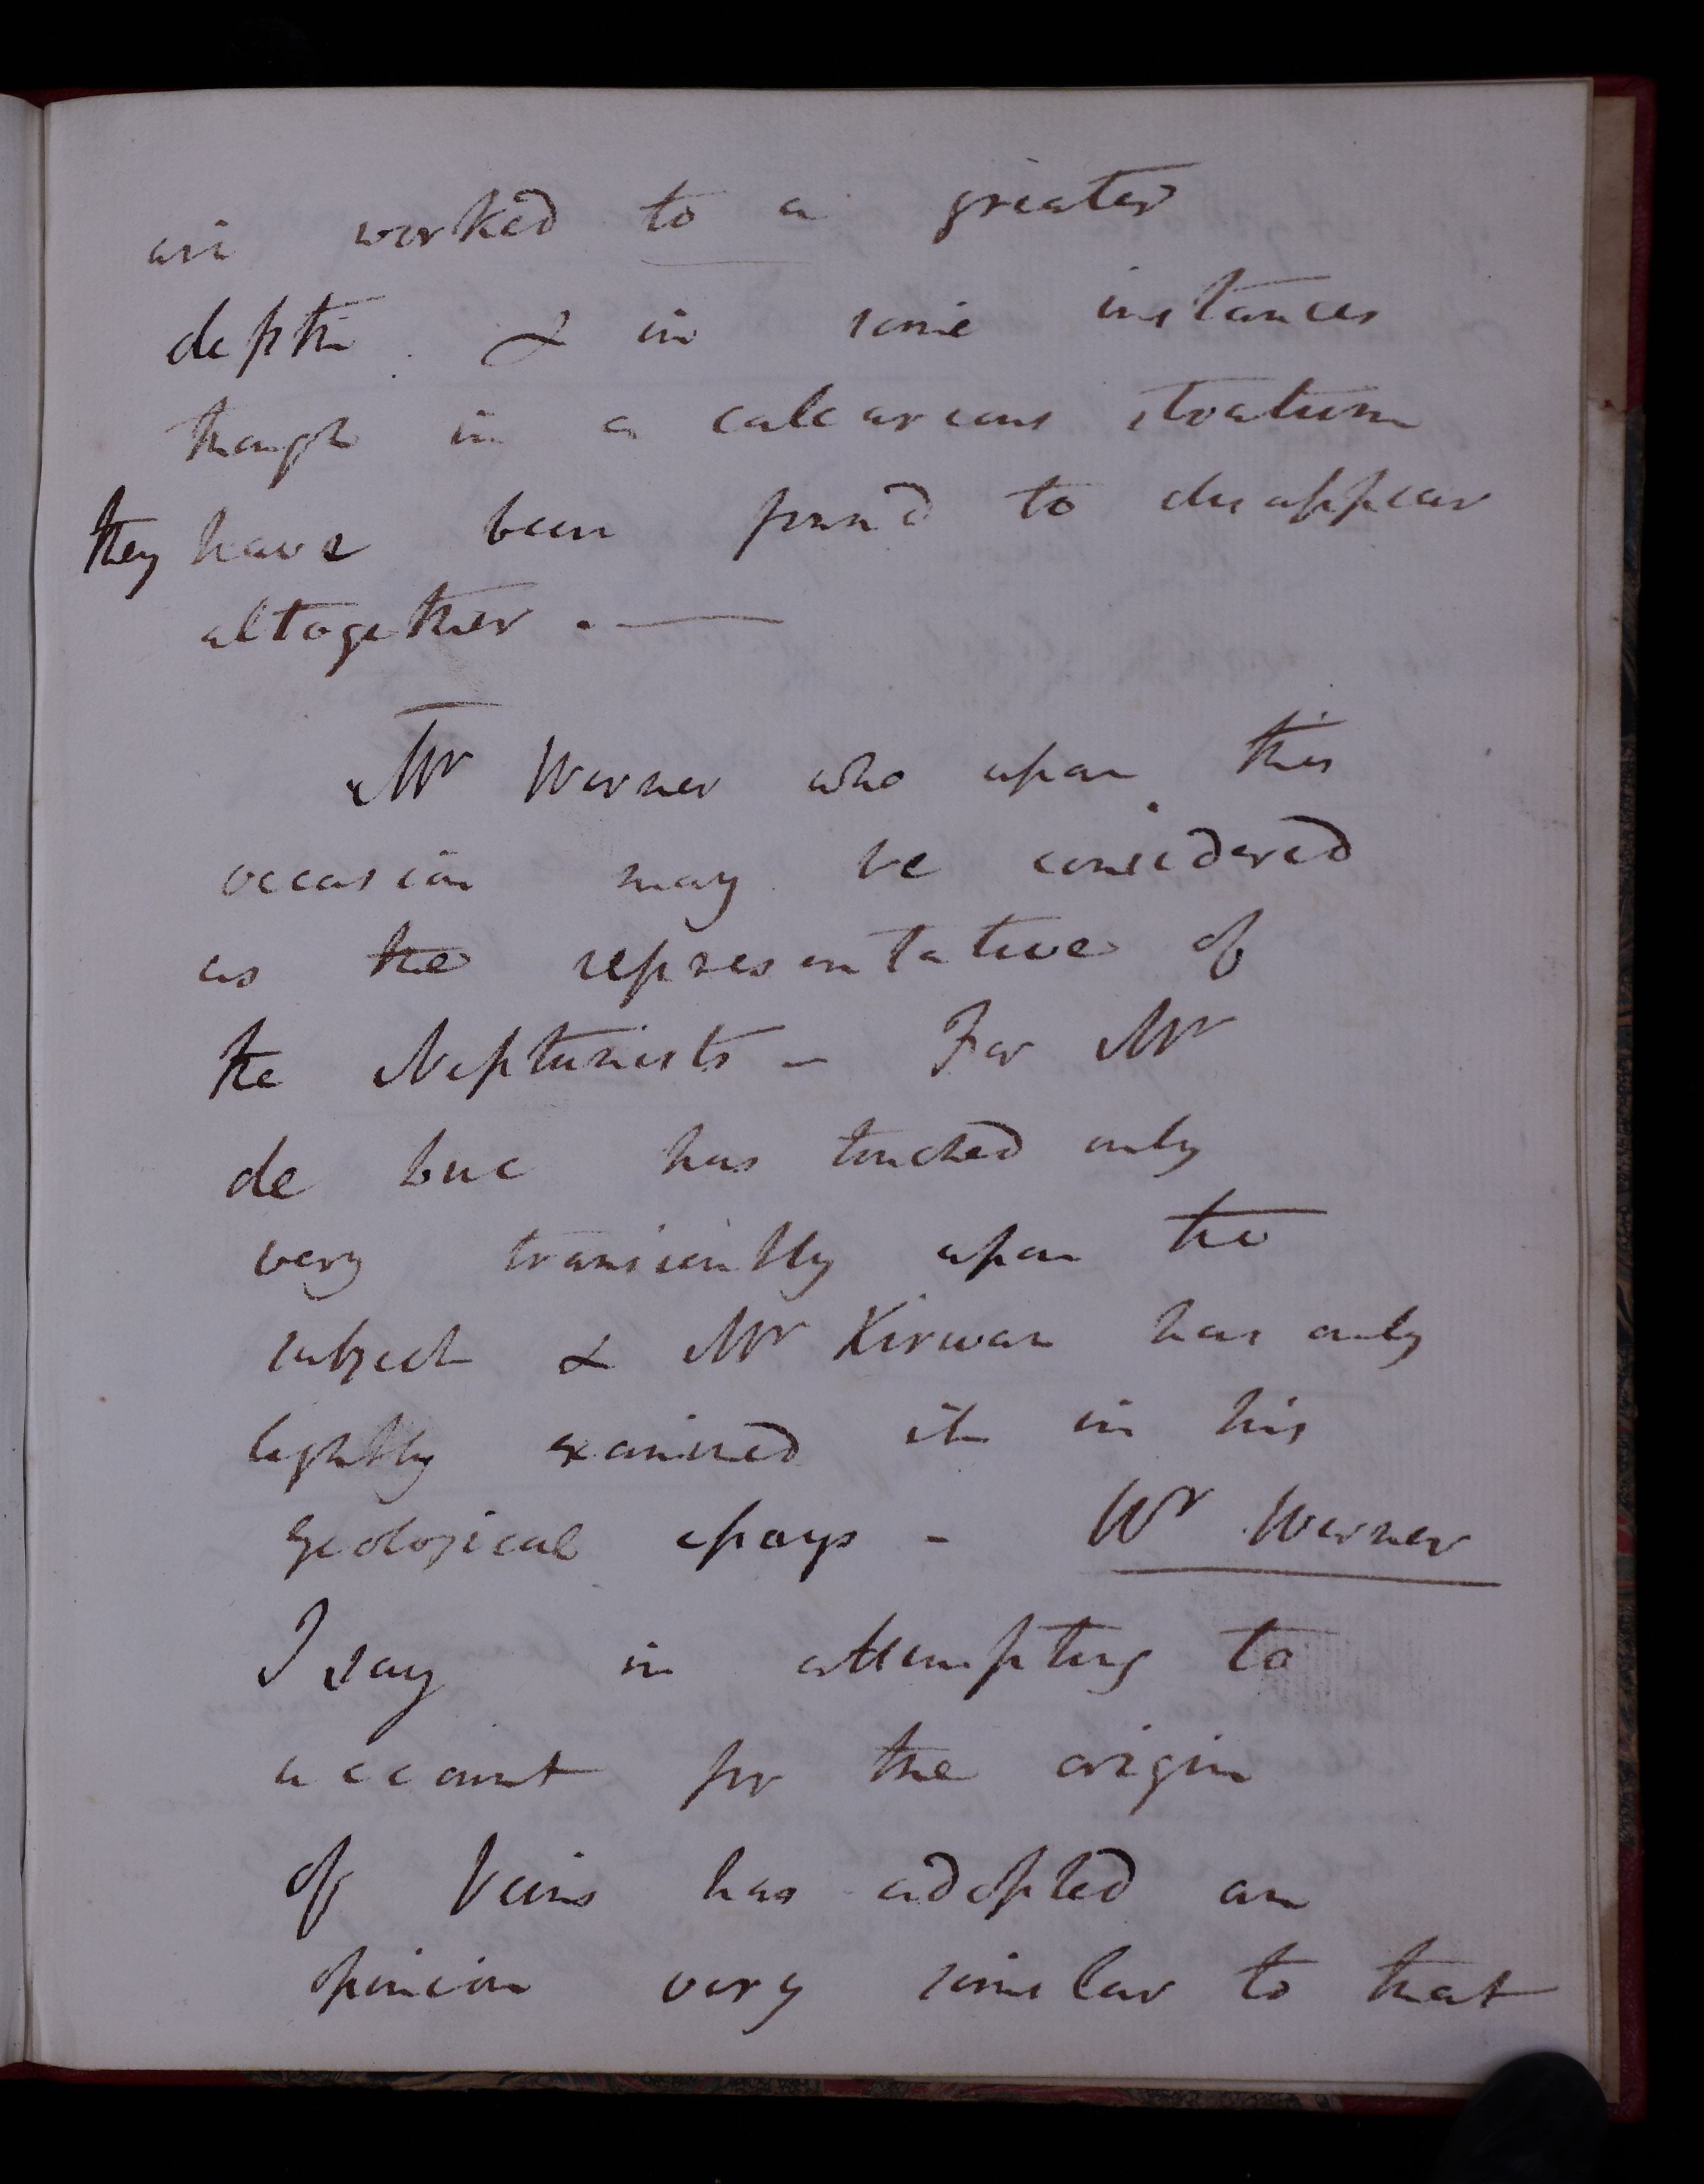 are worked to a greater
depth. & in some instances
though in a calcareous stratum
they have been found to disappear
altogether. —
Mr Werner who upon this
occasion may be considered
as the representative of
the Neptunists – For Mr
de Luc has touched only
very transiently upon the
subject & Mr Kirwan has only
lightly examined it in his
geological essays – Mr Werner
I say in attempting to
account for the origin
of Veins has adopted an
opinion very similar to that